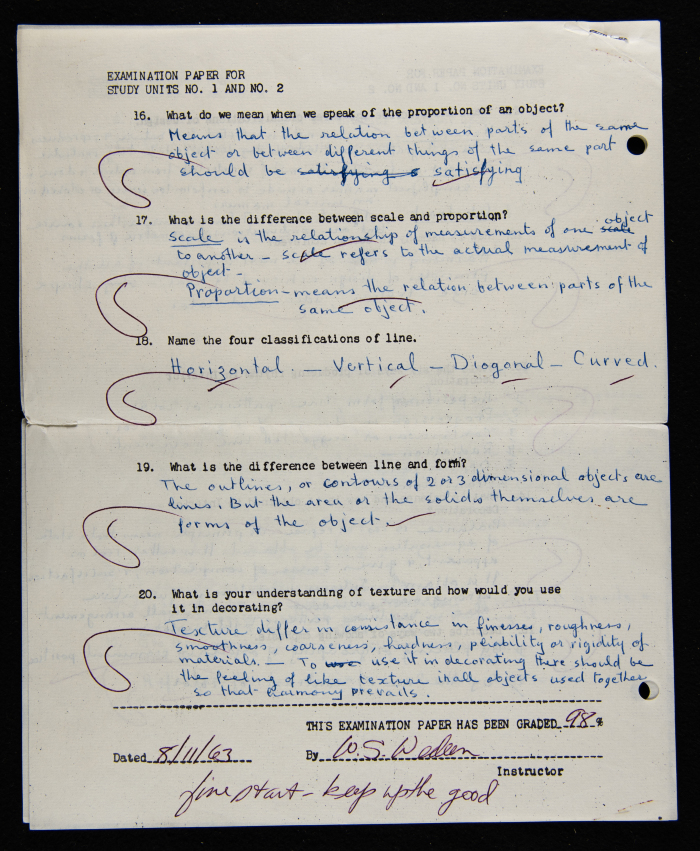 EXAMINATION PAPER FOR
STUDY UNITS NO. 1 AND NO. 2
16. What do we mean when we speak of the proportion of an object?
Means that the relation between parts of the same
object or between different things of the same part
should be satisfying s satisfying
17. What is the difference between scale and proportion?
Scale is the relationship of measurements of one scale object
to another - scale refers to the actual measurement of
object -
Proportion - means the relation between parts of the
same object.
18. Name the four classifications of line.
Horizontal. — Vertical — Diogonal — Curved.
19. What is the difference between line and form?
The outlines, or contours of 2 or 3 dimensional objects are
lines. But the area or the solids themselves are
forms of the object.
20. What is your understanding of texture and how would you use
it in decorating?
Texture differ in consistance in finesses, roughness,
smoothness, coarseness, hardness, pliability or rigidity of
materials. — To use use it in decorating there should be
the feeling of like texture in all objects used together
so that harmony prevails.
THIS EXAMINATION PAPER HAS BEEN GRADED 98 %
Dated 8/11/63 By W.S.
Instructor
fine start - keep up the good